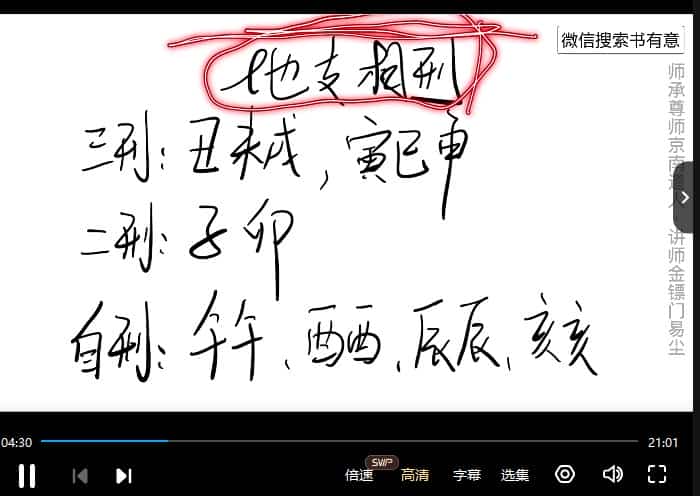 微信搜索书有意
地支相刑
三刑：丑未戌，寅巳申
二刑：子卯
自刑：午午、酉酉、辰辰、亥亥
师承尊师京南道人 讲师金镖门易尘
04:30
21:01
倍速
SVIP
高清
字幕
选集